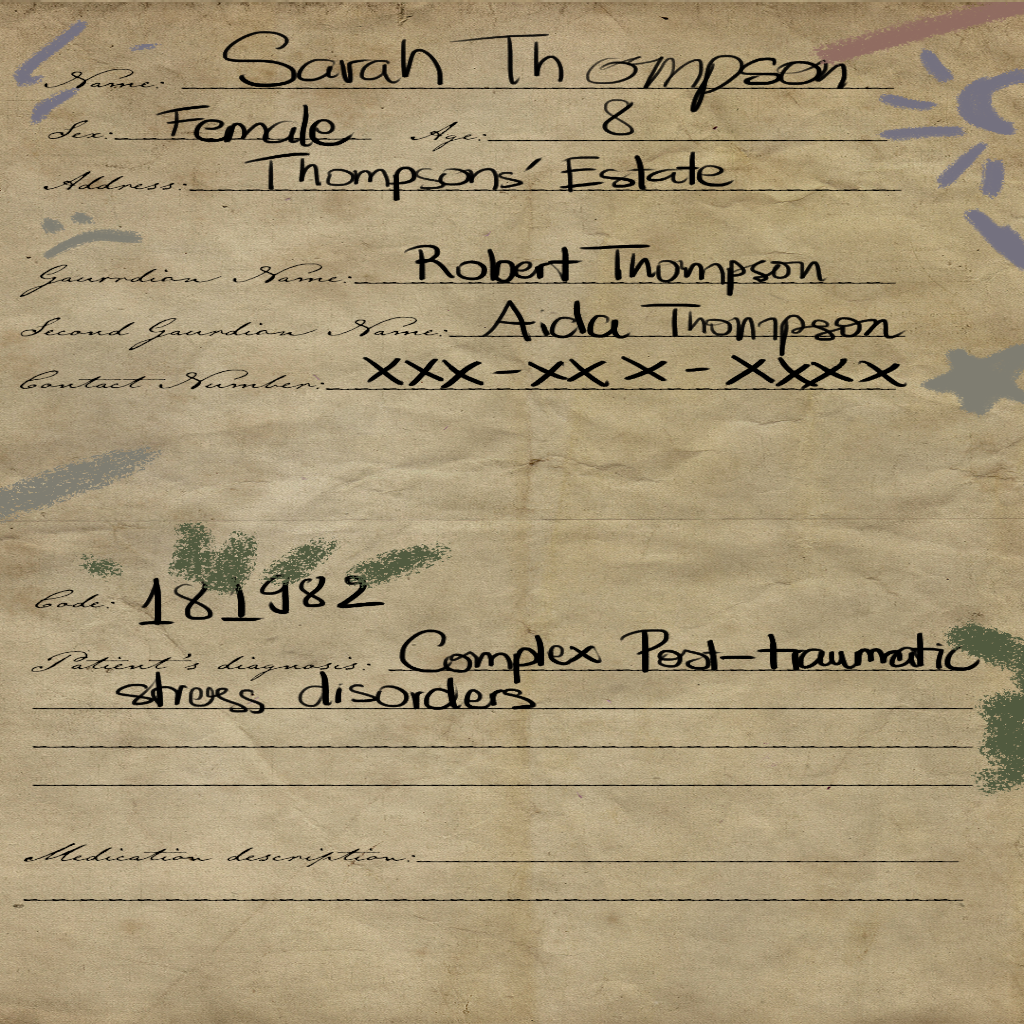 Name: Sarah Thompson
Sex: Female Age: 8
Address: Thompsons' Estate
Gaurdian Name: Robert Thompson
Second Gaurdian Name: Aida Thompson
Contact Number: XXX-XXX-XXXX
Code: 181982
Patient's diagnosis: Complex Post-traumatic
stress disorders
Medication description: